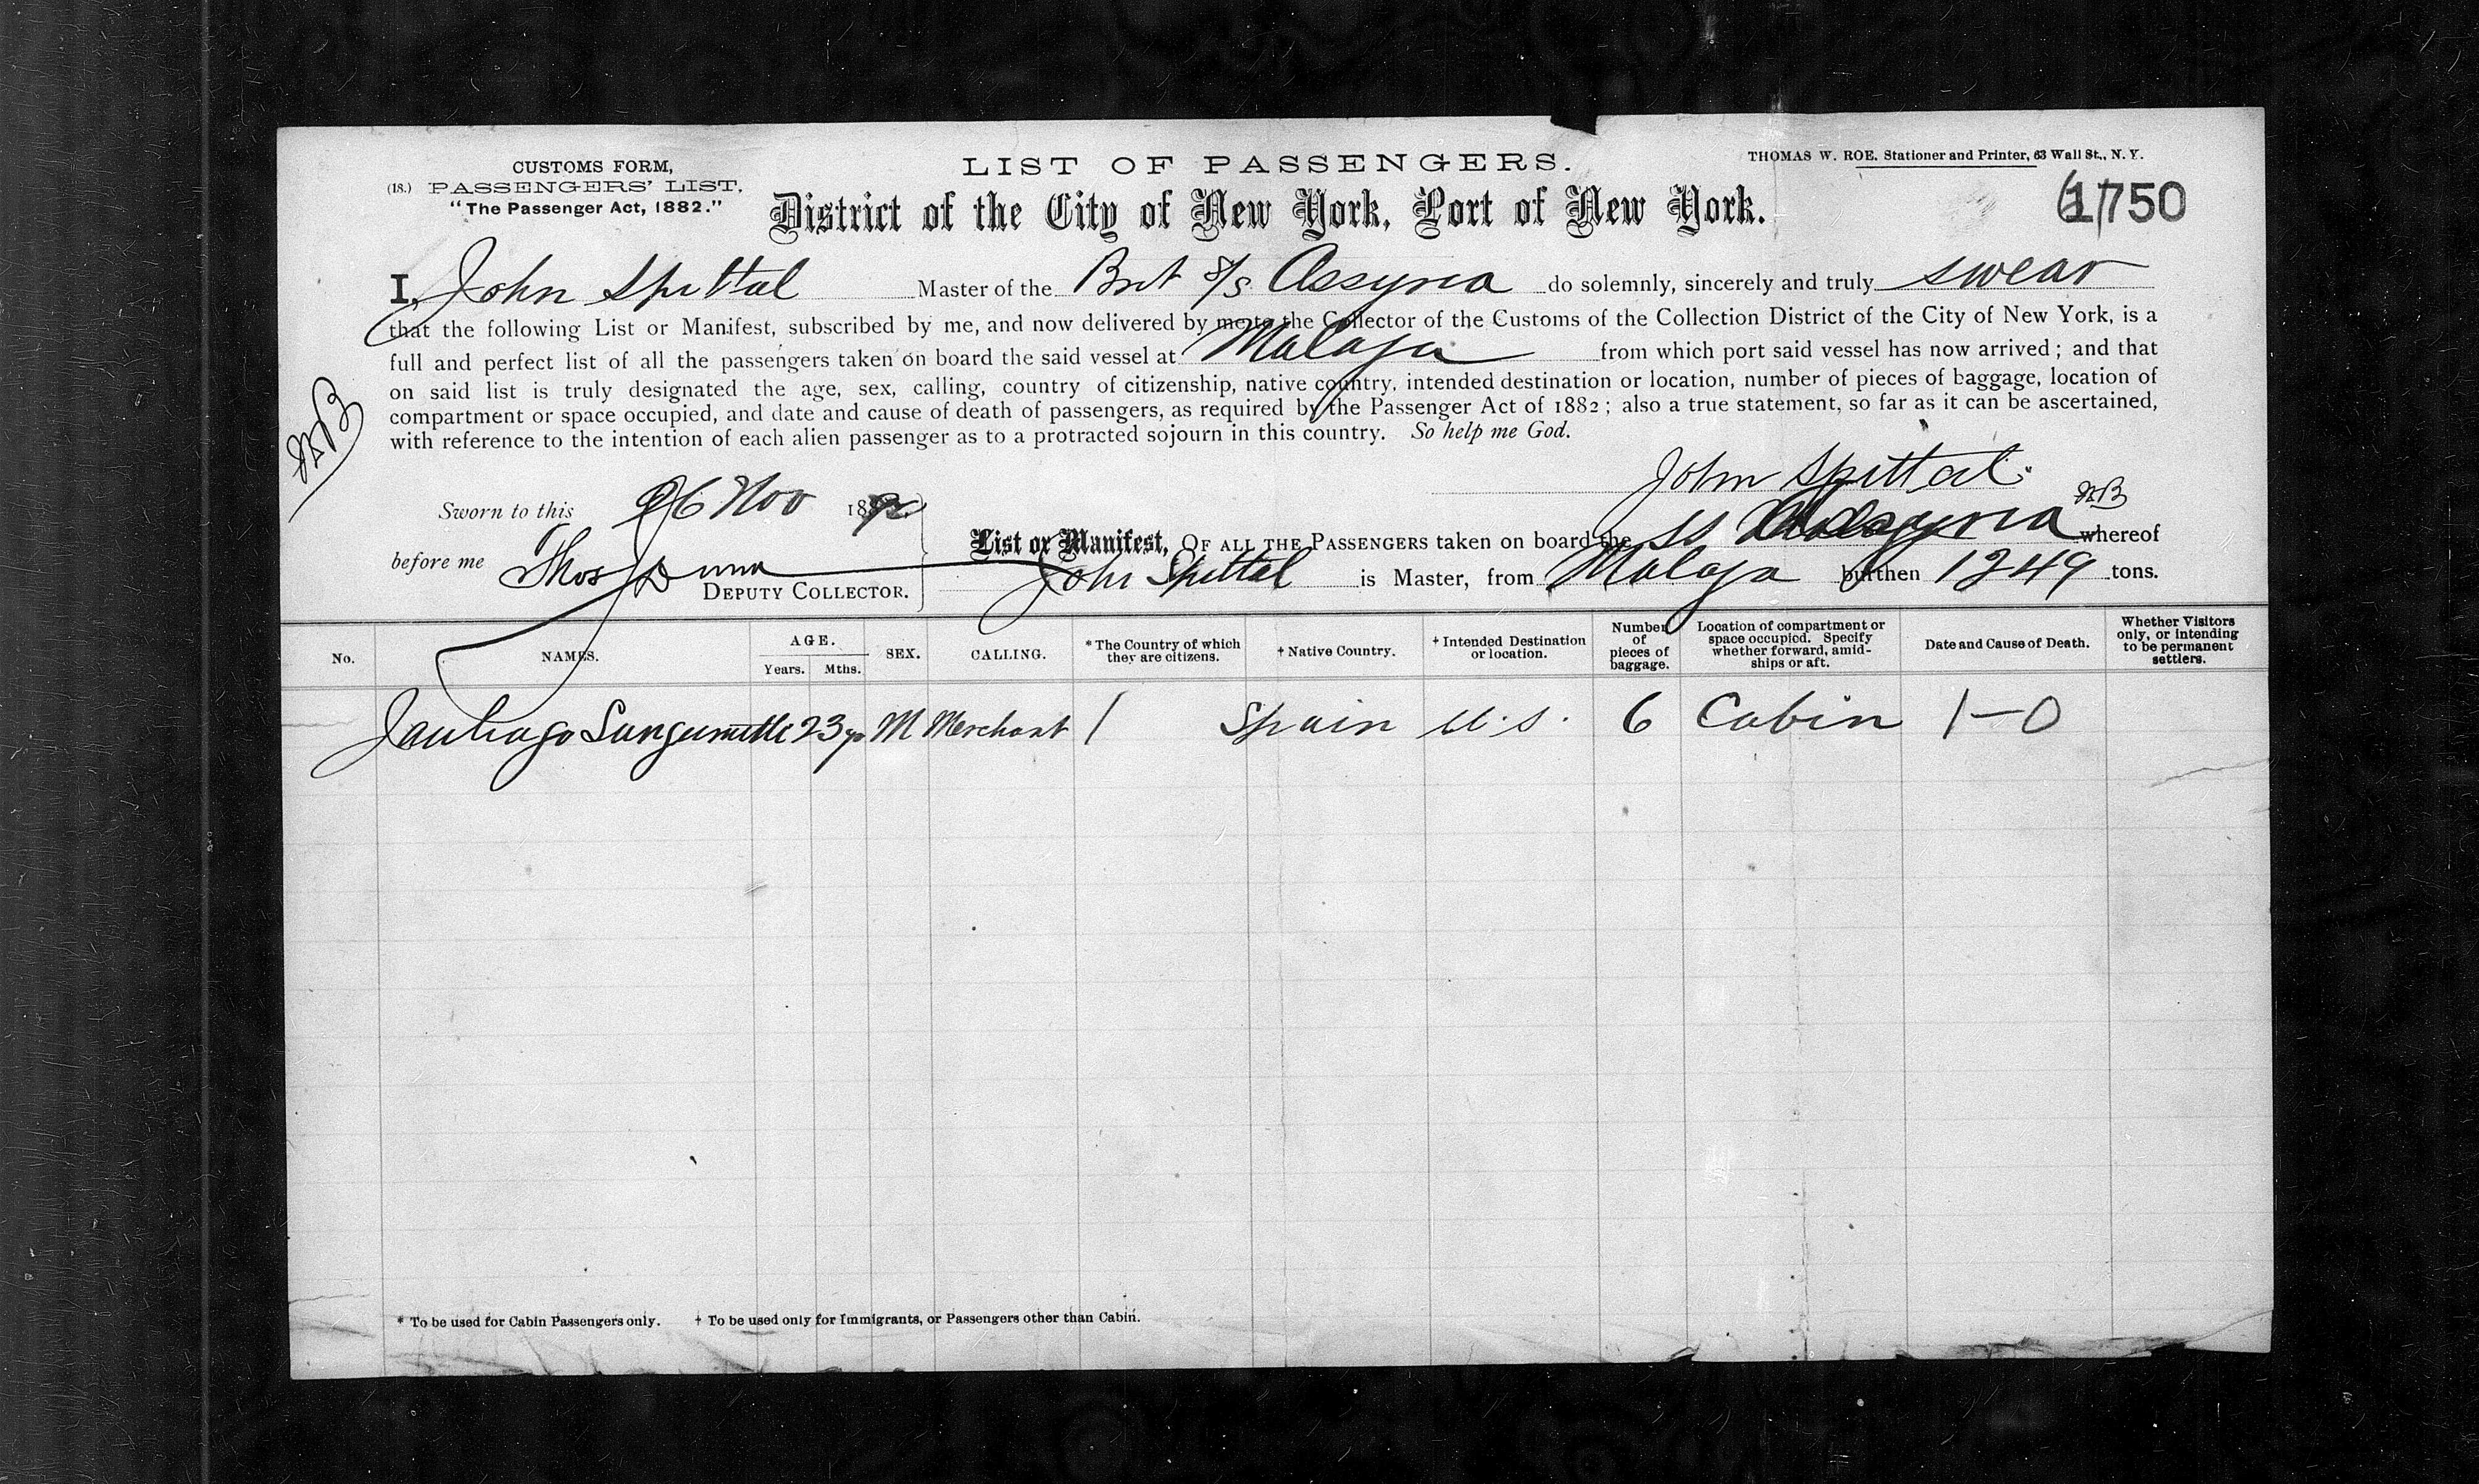 CUSTOMS FORM,
(18.) PASSENGERS' LIST.
"The Passenger Act, 1882."
LIST OF PASSENGERS.
THOMAS W. ROE, Stationer and Printer, 63 Wall St., N. Y.
District of the City of New York, Port of New York.
1750
I, John Spittal Master of the Brit S/S Assyria do solemnly, sincerely and truly swear
that the following List or Manifest, subscribed by me, and now delivered by me to the Collector of the Customs of the Collection District of the City of New York, is a
full and perfect list of all the passengers taken on board the said vessel at Malaga from which port said vessel has now arrived; and that
on said list is truly designated the age, sex, calling, country of citizenship, native country, intended destination or location, number of pieces of baggage, location of
compartment or space occupied, and date and cause of death of passengers, as required by the Passenger Act of 1882; also a true statement, so far as it can be ascertained,
with reference to the intention of each alien passenger as to a protracted sojourn in this country. So help me God.
John Spittal
Sworn to this 26 Nov 1892
before me Thos Dunn
DEPUTY COLLECTOR.
List or Manifest, OF ALL THE PASSENGERS taken on board the SS Assyria whereof
John Spittal is Master, from Malaga burthen 1249 tons.
No.
NAMES.
AGE.
Years. Mths.
SEX.
CALLING.
* The Country of which they are citizens.
† Native Country.
† Intended Destination or location.
Number of pieces of baggage.
Location of compartment or space occupied. Specify whether forward, amidships or aft.
Date and Cause of Death.
Whether Visitors only, or intending to be permanent settlers.
Santiago 23 yrs M Merchant / Spain U.S. 6 Cabin 1—0
* To be used for Cabin Passengers only. † To be used only for Immigrants, or Passengers other than Cabin.